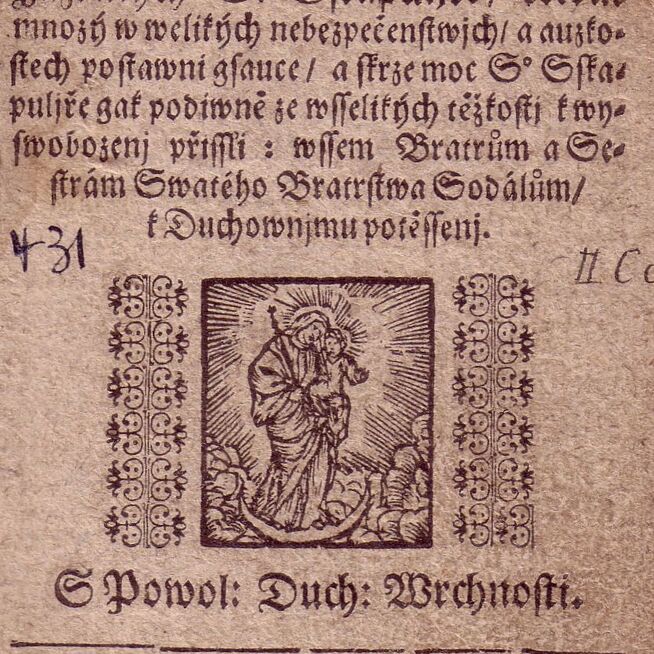 mnozý w welikých nebezpečenstwjch/ a auzko-
stech postawni gsauce/ a skrze moc S° Sska-
puljře gak podiwně ze wsselikých těžkostj k wy-
swobozenj přissli: wssem Bratrům a Se-
strám Swatého Bratrstwa Sodálům/
k Duchownjmu potěssenj.
431
II C
S Powol: Duch: Wrchnosti.